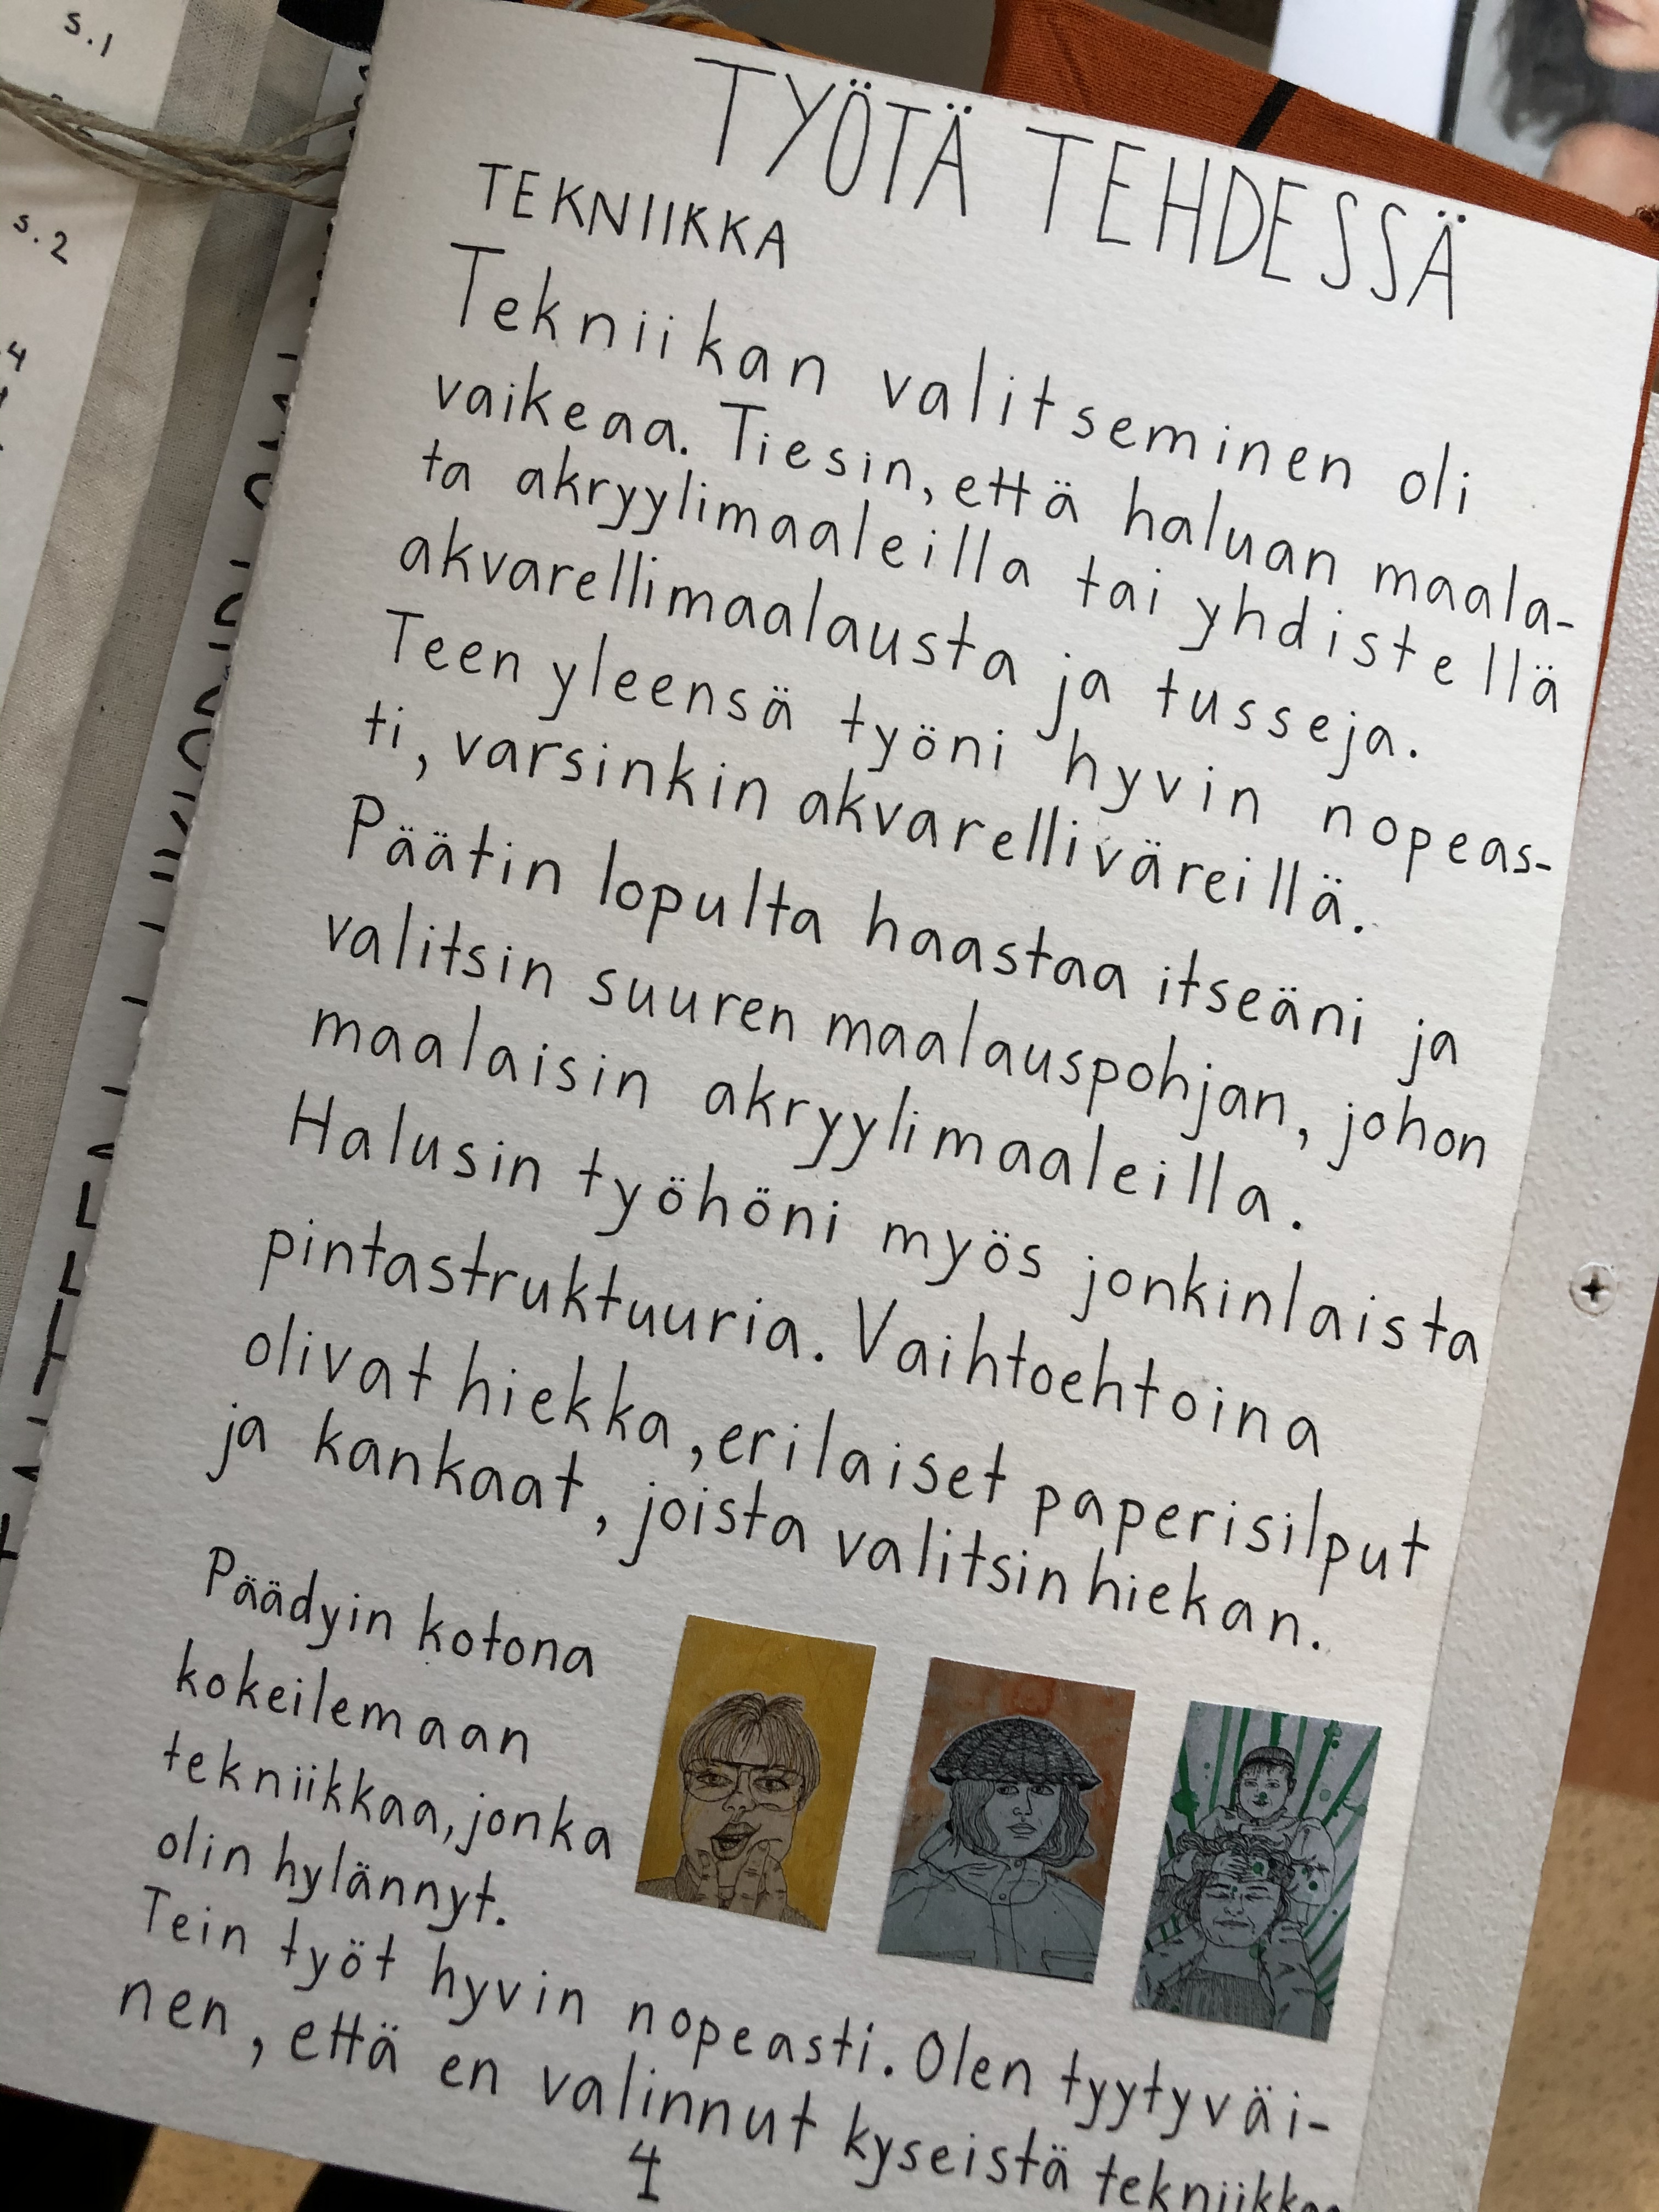 s.1
s.2
TYÖTÄ TEHDESSÄ
TEKNIIKKA
Tekniikan valitseminen oli
vaikeaa. Tiesin, että haluan maala-
ta akryylimaaleilla tai yhdistellä
akvarellimaalausta ja tusseja.
Teen yleensä työni hyvin nopeas-
ti, varsinkin akvarelliväreillä.
Päätin lopulta haastaa itseäni ja
valitsin suuren maalauspohjan, johon
maalaisin akryylimaaleilla.
Halusin työhöni myös jonkinlaista
pintastruktuuria. Vaihtoehtoina
olivat hiekka, erilaiset paperisilput
ja kankaat, joista valitsin hiekan.
Päädyin kotona
kokeilemaan
tekniikkaa, jonka
olin hylännyt.
Tein työt hyvin nopeasti. Olen tyytyväi-
nen, että en valinnut kyseistä tekniikkaa
4